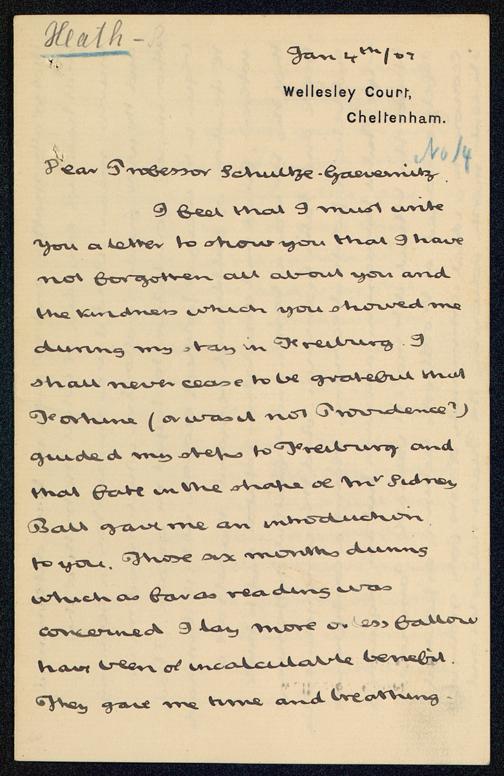 Heath -
Jan 4th/07
Wellesley Court,
Cheltenham.
No 14
Dear Professor Schultze-Gaevernitz.
I feel that I must write
you a letter to show you that I have
not forgotten all about you and
the kindness which you showed me
during my stay in Freiburg. I
shall never cease to be grateful that
Fortune (or was it not Providence?)
guided my steps to Freiburg and
that fate in the shape of Mr Sidney
Ball gave me an introduction
to you. Those six months during
which as far as reading was
concerned I lay more or less fallow
have been of incalculable benefit.
They gave me time and breathing-